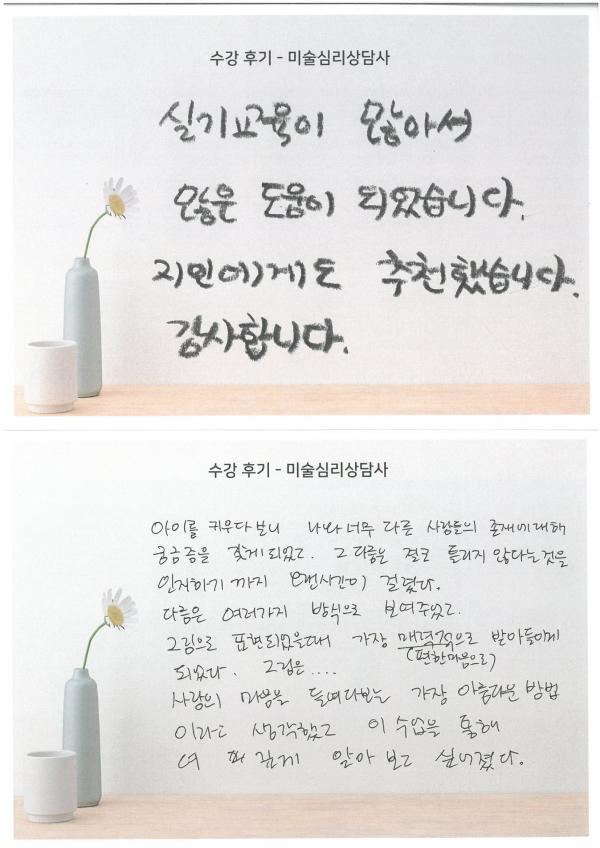 수강 후기 - 미술심리상담사
실기교육이 많아서
많은 도움이 되었습니다.
지인에게도 추천했습니다.
감사합니다.
수강 후기 - 미술심리상담사
아이를 키우다보니 나와 너무 다른 사람들의 존재에 대해
궁금증을 갖게되었고. 그 다름은 결코 틀리지 않다는것을
인지하기 까지 오랜시간이 걸렸다.
다름은 여러가지 방식으로 보여주었고.
그림으로 표현되었을때 가장 매력적으로 받아들이게
(편한마음으로)
되었다. 그림은....
사람의 마음을 들여다보는 가장 아름다운 방법
이라고 생각했고 이 수업을 통해
더 깊게 알아 보고 싶어졌다.